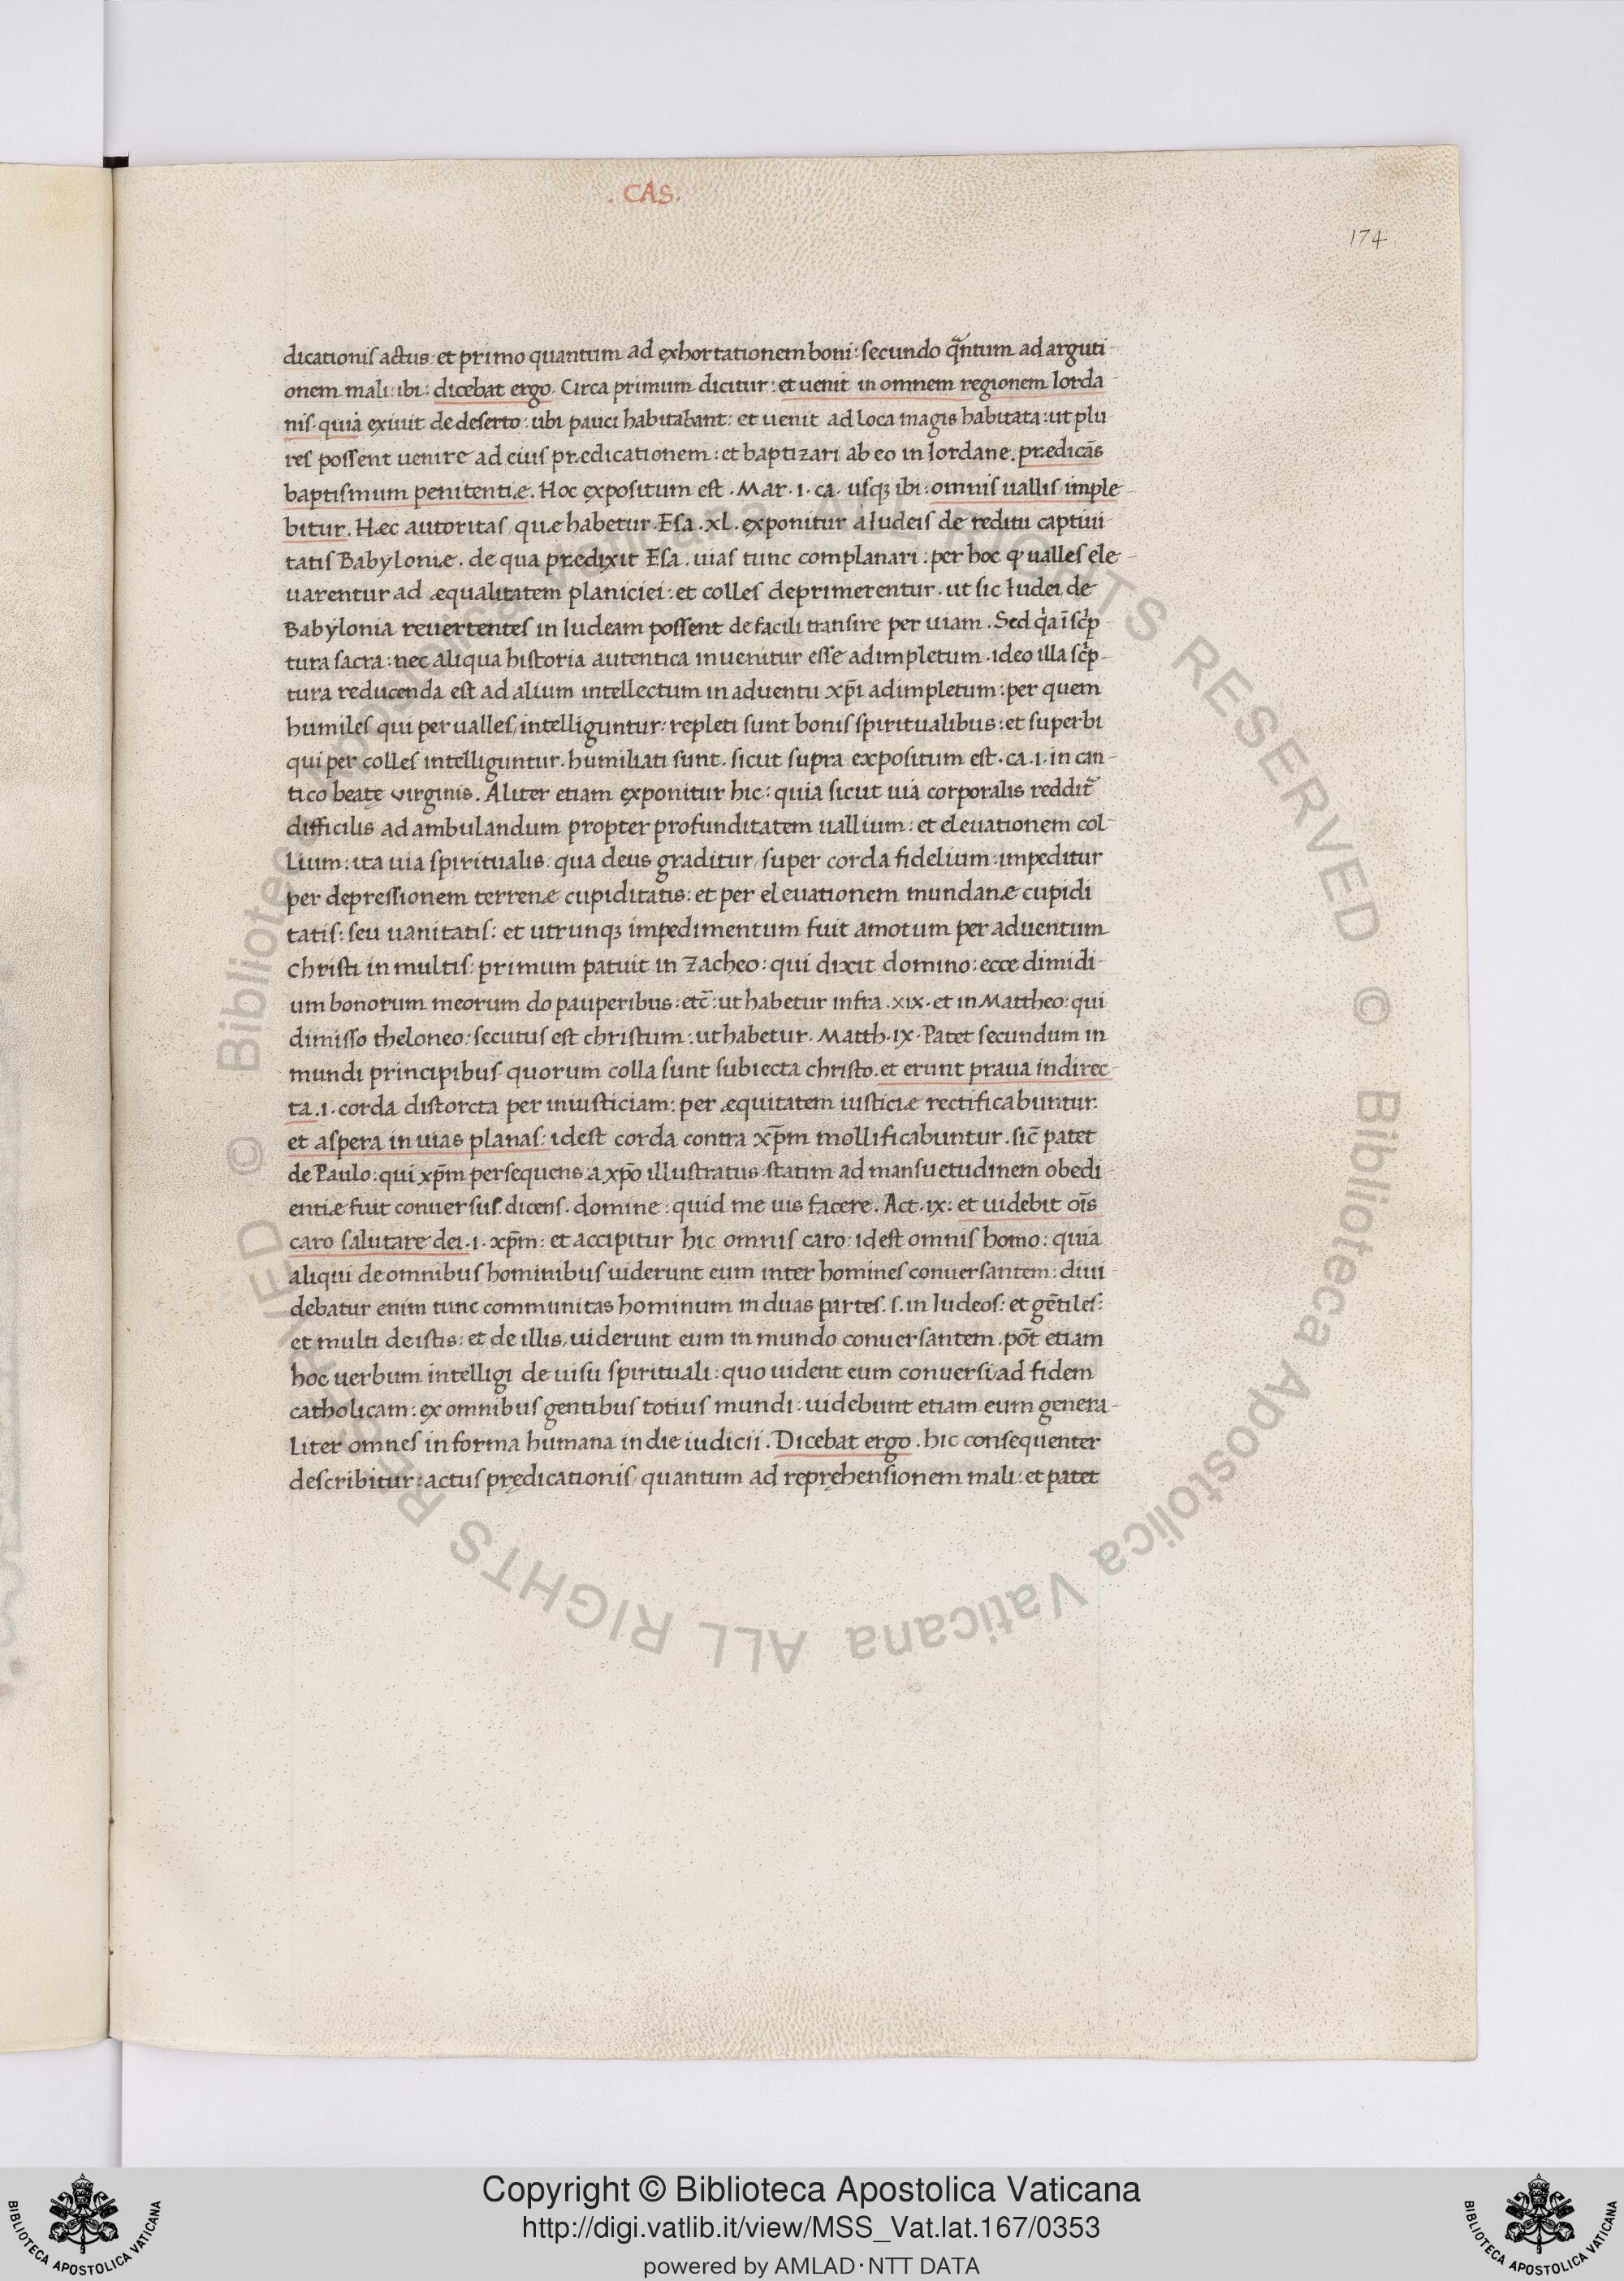 . CAS.
174
dicationis actus: et primo quantum ad exhortationem boni: secundo q̃ntum ad arguti-
onem mali: ibi: dicebat ergo. Circa primum dicitur: et uenit in omnem regionem Iorda-
nis. quia exiuit de deserto: ubi pauci habitabant: et uenit ad loca magis habitata: ut plu
res possent uenire ad eius prædicationem: et baptizari ab eo in Iordane. prædicãs
baptismum penitentiæ. Hoc expositum est. Mar. 1. ca. usq; ibi: omnis uallis imple-
bitur. Hæc autoritas, quæ habetur. Esa. XL. exponitur a Iudeis de reditu captiui-
tatis Babyloniæ. de qua prædixit Esa. uias tunc complanari: per hoc ꝙ ualles ele-
uarentur ad æqualitatem planiciei: et colles deprimerentur. ut sic Iudei, de
Babylonia reuertentes in Iudeam possent de facili transire per uiam. Sed q̉a ī sc̉p-
tura sacra: nec aliqua historia autentica inuenitur esse adimpletum. ideo illa sc̉p-
tura reducenda est ad alium intellectum in aduentu xp̄i adimpletum: per quem
humiles qui per ualles, intelliguntur: repleti sunt bonis spiritualibus: et superbi
qui per colles intelliguntur. humiliati sunt. sicut supra expositum est. ca. 1. in can-
tico beatę virginis. Aliter etiam exponitur hic: quia sicut uia corporalis reddit̃
difficilis ad ambulandum propter profunditatem uallium: et eleuationem col-
lium: ita uia spiritualis: qua deus graditur, super corda fidelium: impeditur
per depressionem terrenæ cupiditatis: et per eleuationem mundanæ cupidi
tatis: seu uanitatis: et utrunq; impedimentum fuit amotum per aduentum
christi in multis: primum patuit in Zacheo: qui dixit domino: ecce dimidi-
um bonorum meorum do pauperibus: etc̃: ut habetur infra. XIX. et in Mattheo: qui
dimisso theloneo: secutus est christum: ut habetur. Matth. IX. Patet secundum in
mundi principibus quorum colla sunt subiecta christo. et erunt praua in direc-
ta. i. corda distorcta per iniusticiam: per æquitatem iusticiæ rectificabuntur.
et aspera in uias planas: idest corda contra xp̄m mollificabuntur. sic̄ patet
de Paulo: qui xp̄m persequens, a xp̄o illustratus statim ad mansuetudinem obedi
entiæ fuit conuersus. dicens. domine: quid me uis facere. Act. IX: et uidebit oīs
caro salutare dei. i. xp̄m: et accipitur hic omnis caro: idest omnis homo: quia
aliqui de omnibus hominibus uiderunt eum inter homines conuersantem: diui-
debatur enim tunc communitas hominum in duas partes. s. in Iudeos: et gētiles:
et multi de istis: et de illis, uiderunt eum in mundo conuersantem. pōt etiam
hoc uerbum intelligi de uisu spirituali: quo uident eum conuersi, ad fidem
catholicam: ex omnibus gentibus totius mundi: uidebunt etiam eum genera-
liter omnes in forma humana in die iudicii. Dicebat ergo. hic consequenter
describitur: actus prędicationis, quantum ad repręhensionem mali: et patet
© Biblioteca Apostolica Vaticana ALL RIGHTS RESERVED
© Biblioteca Apostolica Vaticana ALL RIGHTS RESERVED
Copyright © Biblioteca Apostolica Vaticana
http://digi.vatlib.it/view/MSS_Vat.lat.167/0353
powered by AMLAD·NTT DATA
BIBLIOTECA APOSTOLICA VATICANA
BIBLIOTECA APOSTOLICA VATICANA